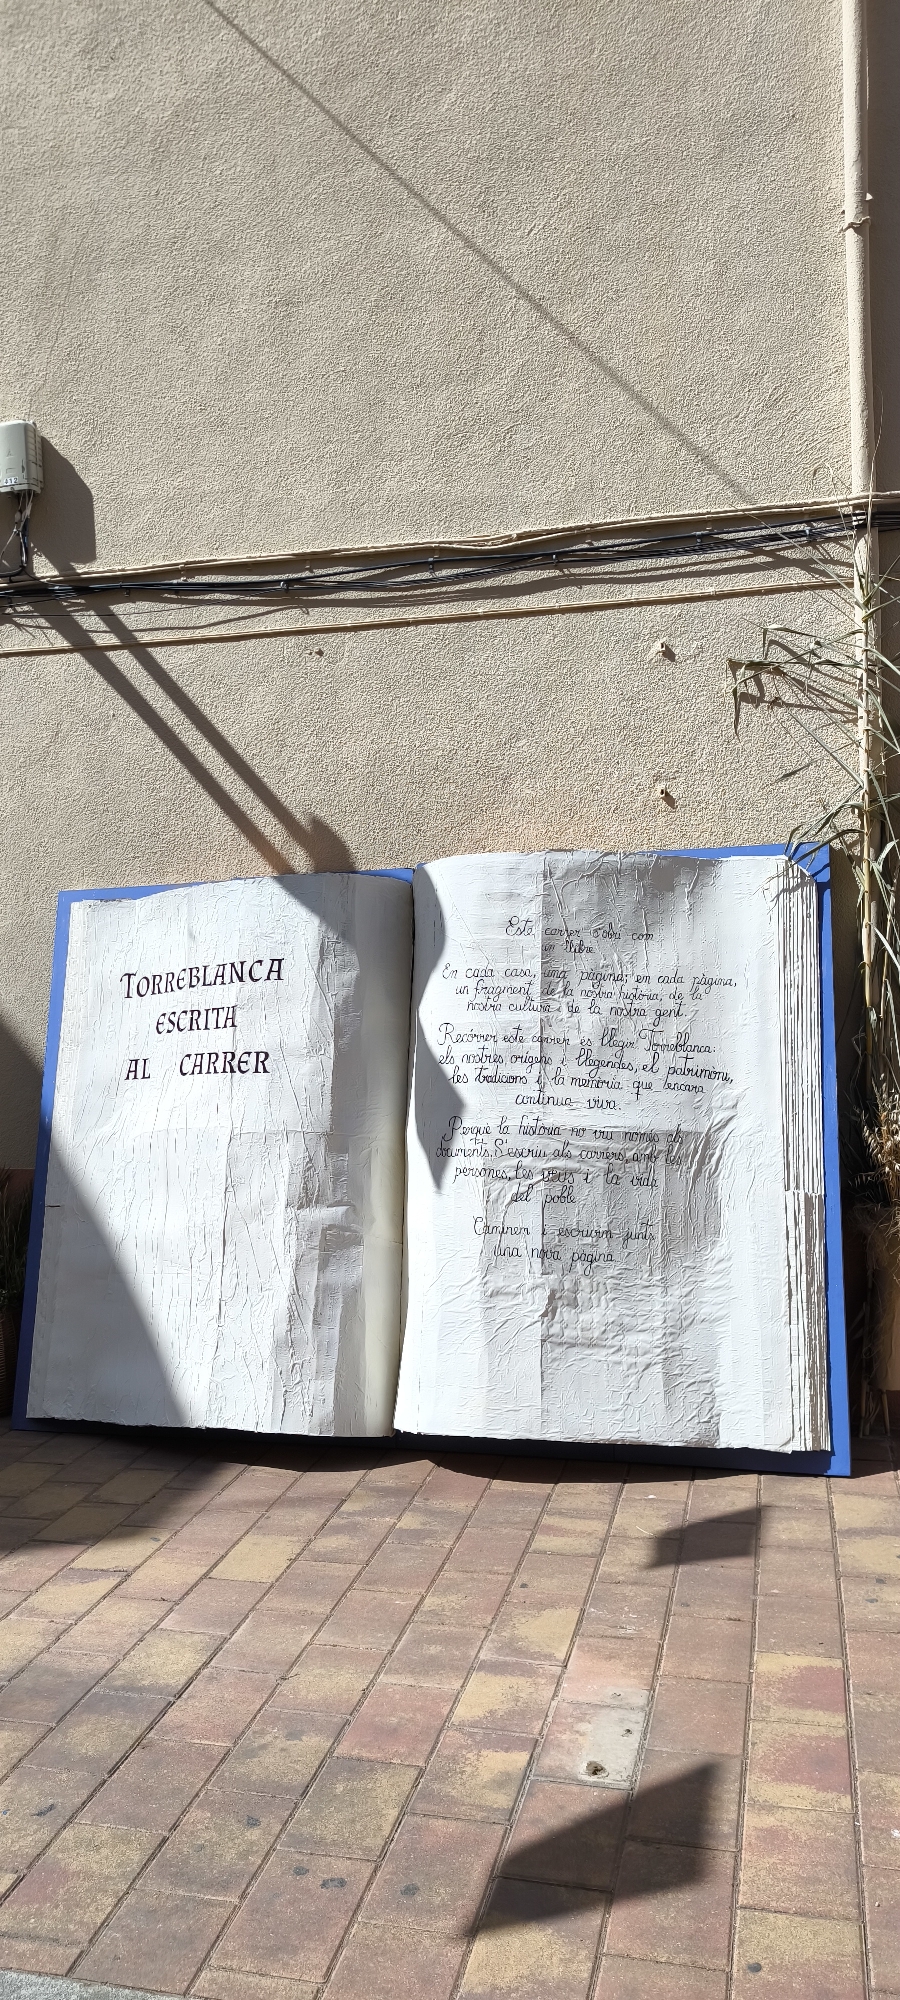 412
TORREBLANCA
ESCRITA
AL CARRER
Este carrer s'obri com
un llibre.
En cada casa, una pàgina; en cada pàgina,
un fragment de la nostra història, de la
nostra cultura i de la nostra gent.
Recórrer este carrer és llegir Torreblanca:
els nostres orígens i llegendes, el patrimoni,
les tradicions i la memòria que encara
continua viva.
Perquè la història no viu només als
documents. S'escriu als carrers, amb les
persones, les veus i la vida
del poble.
Caminem i escrivim junts
una nova pàgina